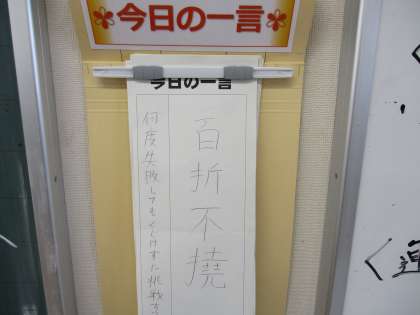 今日の一言
今日の一言
百折不撓
何度失敗してもくじけずに挑戦す